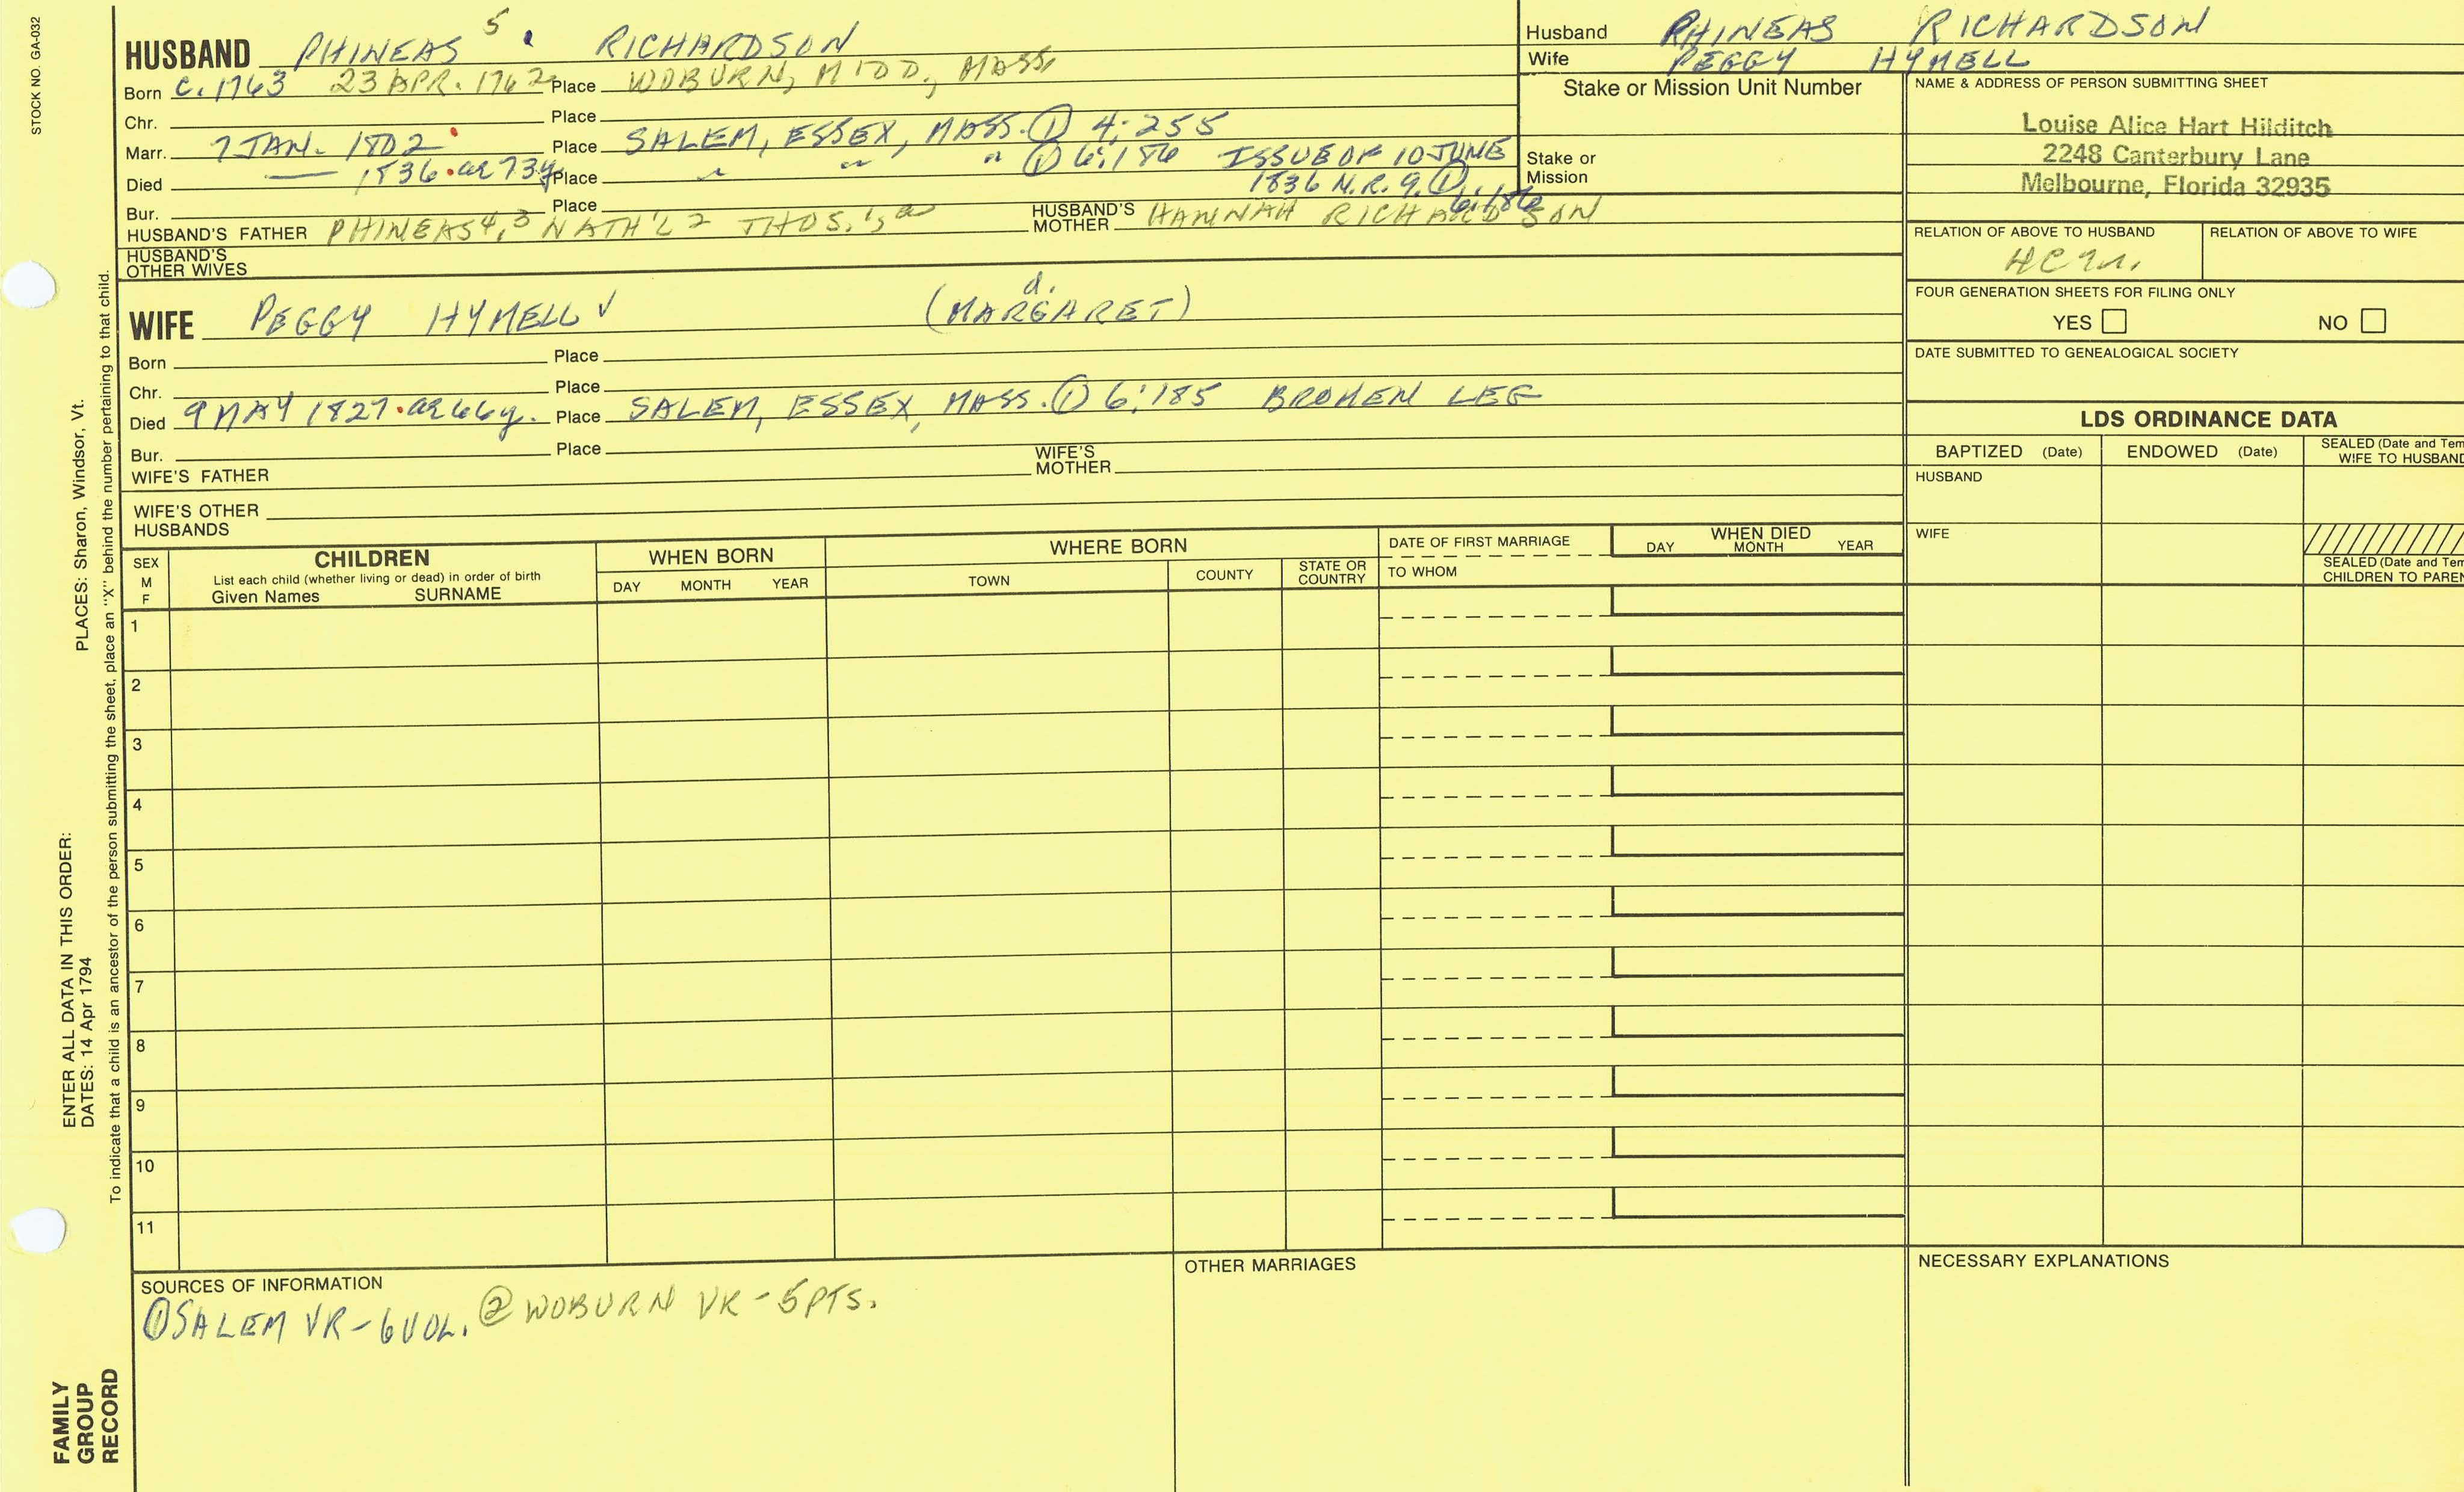 STOCK NO. GA-032
HUSBAND PHINEAS 5. RICHARDSON
Born c. 1763 23 APR. 1762 Place WOBURN, MIDD., MASS.
Chr. Place
Marr. 7 JAN. 1802 Place SALEM, ESSEX, MASS. ① 4:255
Died — 1836. ae 73y. Place " " " ① 6:186 ISSUE OF 10 JUNE
1836 N.R. 9. ① 6:186
Bur. Place
HUSBAND'S FATHER PHINEAS 4,3 NATH'L 2 THOS. 1, a HUSBAND'S MOTHER HANNAH RICHARDSON
HUSBAND'S OTHER WIVES
WIFE PEGGY HYMELL √ (MARGARET) d.
Born Place
Chr. Place
Died 9 MAY 1827. ae 66y. Place SALEM, ESSEX, MASS. ① 6:185 BROKEN LEG
Bur. Place
WIFE'S FATHER WIFE'S MOTHER
WIFE'S OTHER HUSBANDS
Husband PHINEAS RICHARDSON
Wife PEGGY HYMELL
Stake or Mission Unit Number
Stake or Mission
NAME & ADDRESS OF PERSON SUBMITTING SHEET
Louise Alice Hart Hilditch
2248 Canterbury Lane
Melbourne, Florida 32935
RELATION OF ABOVE TO HUSBAND RELATION OF ABOVE TO WIFE
FOUR GENERATION SHEETS FOR FILING ONLY
YES NO
DATE SUBMITTED TO GENEALOGICAL SOCIETY
LDS ORDINANCE DATA
BAPTIZED (Date) ENDOWED (Date) SEALED (Date and Tem
WIFE TO HUSBAND
HUSBAND
WIFE
SEALED (Date and Tem
CHILDREN TO PAREN
SEX M F
CHILDREN
List each child (whether living or dead) in order of birth
Given Names SURNAME
WHEN BORN
DAY MONTH YEAR
WHERE BORN
TOWN COUNTY STATE OR COUNTRY
DATE OF FIRST MARRIAGE
TO WHOM
WHEN DIED
DAY MONTH YEAR
1
2
3
4
5
6
7
8
9
10
11
SOURCES OF INFORMATION
① SALEM VR - 6 VOL. ② WOBURN VR - 5 PTS.
OTHER MARRIAGES
NECESSARY EXPLANATIONS
FAMILY GROUP RECORD
ENTER ALL DATA IN THIS ORDER:
DATES: 14 Apr 1794
PLACES: Sharon, Windsor, Vt.
To indicate that a child is an ancestor of the person submitting the sheet, place an "X" behind the number pertaining to that child.